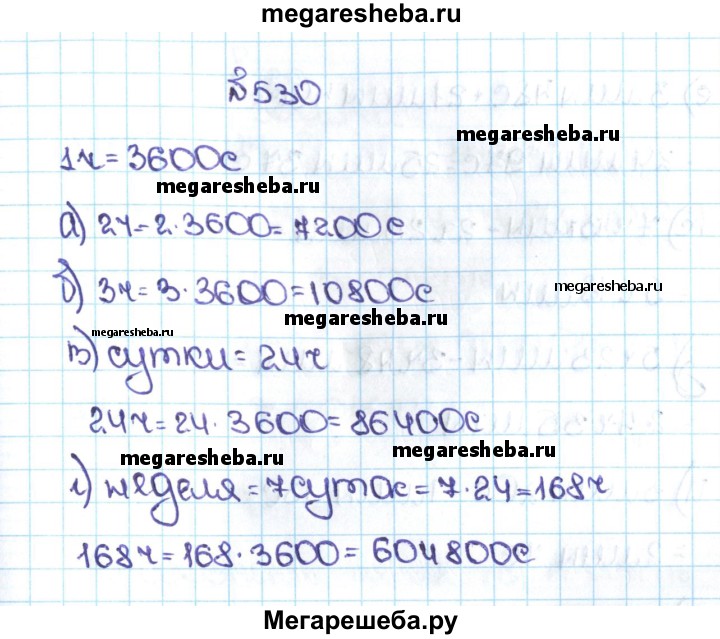 megaresheba.ru
№530
megaresheba.ru
1ч=3600с
megaresheba.ru
а) 2ч=2·3600=7200с
б) 3ч=3·3600=10800с
megaresheba.ru
megaresheba.ru
megaresheba.ru
в) сутки=24ч
24ч=24·3600=86400с
megaresheba.ru
megaresheba.ru
г) неделя=7суток=7·24=168ч
168ч=168·3600=604800с
Мегарешеба.ру